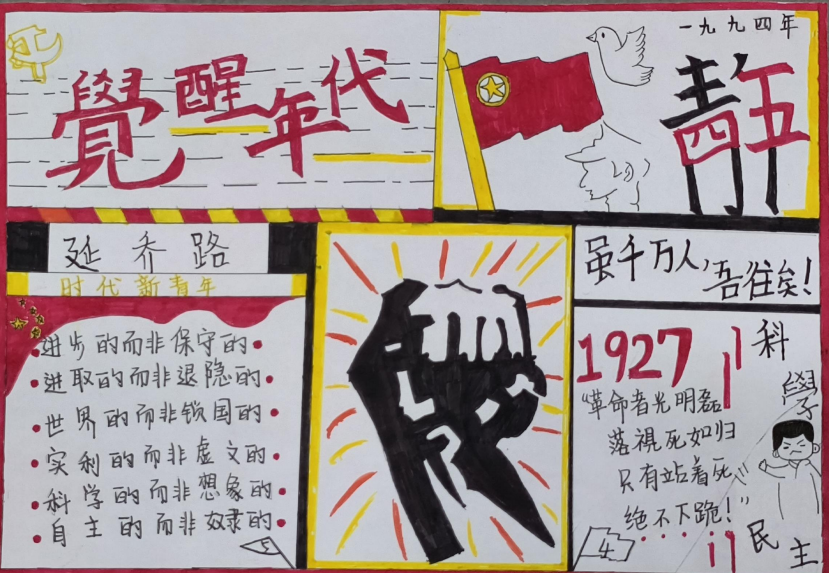 覺醒年代
一九九四年
青年
五四
延乔路
时代新青年
进步的而非保守的
进取的而非退隐的
世界的而非锁国的
实利的而非虚文的
科学的而非想象的
自主的而非奴隶的
虽千万人,
吾往矣!
1927
“革命者光明磊
落視死如归
只有站着死
绝不下跪!”
科
學
民
主
5
4